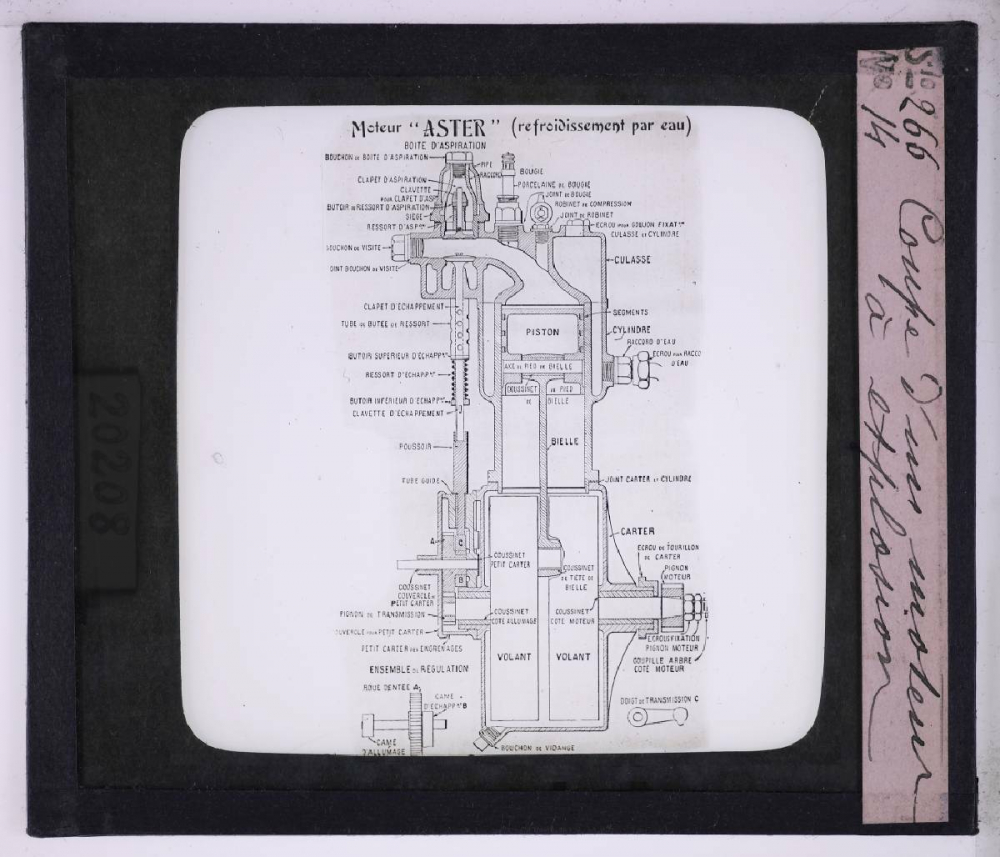 Moteur "ASTER" (refroidissement par eau)
BOITE D'ASPIRATION
BOUCHON DE BOITE D'ASPIRATION
PIPE
RACCORD
CLAPET D'ASPIRATION
CLAVETTE
POUR CLAPET D'ASP
BUTOIR DE RESSORT D'ASPIRATION
SIÈGE
RESSORT D'ASP
BOUCHON DE VISITE
JOINT BOUCHON DE VISITE
BOUGIE
PORCELAINE DE BOUGIE
JOINT DE BOUGIE
ROBINET DE COMPRESSION
JOINT DE ROBINET
ECROU POUR GOUJON FIXAT
CULASSE ET CYLINDRE
CULASSE
CLAPET D'ÉCHAPPEMENT
TUBE DE BUTÉE DE RESSORT
BUTOIR SUPERIEUR D'ÉCHAPP
RESSORT D'ÉCHAPP
BUTOIR INFERIEUR D'ÉCHAPP
CLAVETTE D'ÉCHAPPEMENT
POUSSOIR
TUBE GUIDE
SEGMENTS
PISTON
CYLINDRE
RACCORD D'EAU
ECROU POUR RACCO
D'EAU
AXE DE PIED DE BIELLE
COUSSINET DE PIED
DE BIELLE
BIELLE
JOINT CARTER ET CYLINDRE
CARTER
A
C
B
COUSSINET
PETIT CARTER
ECROU DE TOURILLON
DE CARTER
PIGNON
MOTEUR
COUSSINET
DE TÊTE DE
BIELLE
COUSSINET
COUVERCLE DE
PETIT CARTER
PIGNON DE TRANSMISSION
COUVERCLE POUR PETIT CARTER
PETIT CARTER DES ENGRENAGES
COUSSINET
COTÉ ALLUMAGE
COUSSINET
COTÉ MOTEUR
VOLANT
VOLANT
ECROUS FIXATION
PIGNON MOTEUR
GOUPILLE ARBRE
COTÉ MOTEUR
ENSEMBLE DE REGULATION
ROUE DENTÉE A
CAME
D'ÉCHAPP B
CAME
D'ALLUMAGE
DOIGT DE TRANSMISSION C
BOUCHON DE VIDANGE
20208
266 Coupe d'un moteur
14 à explosion